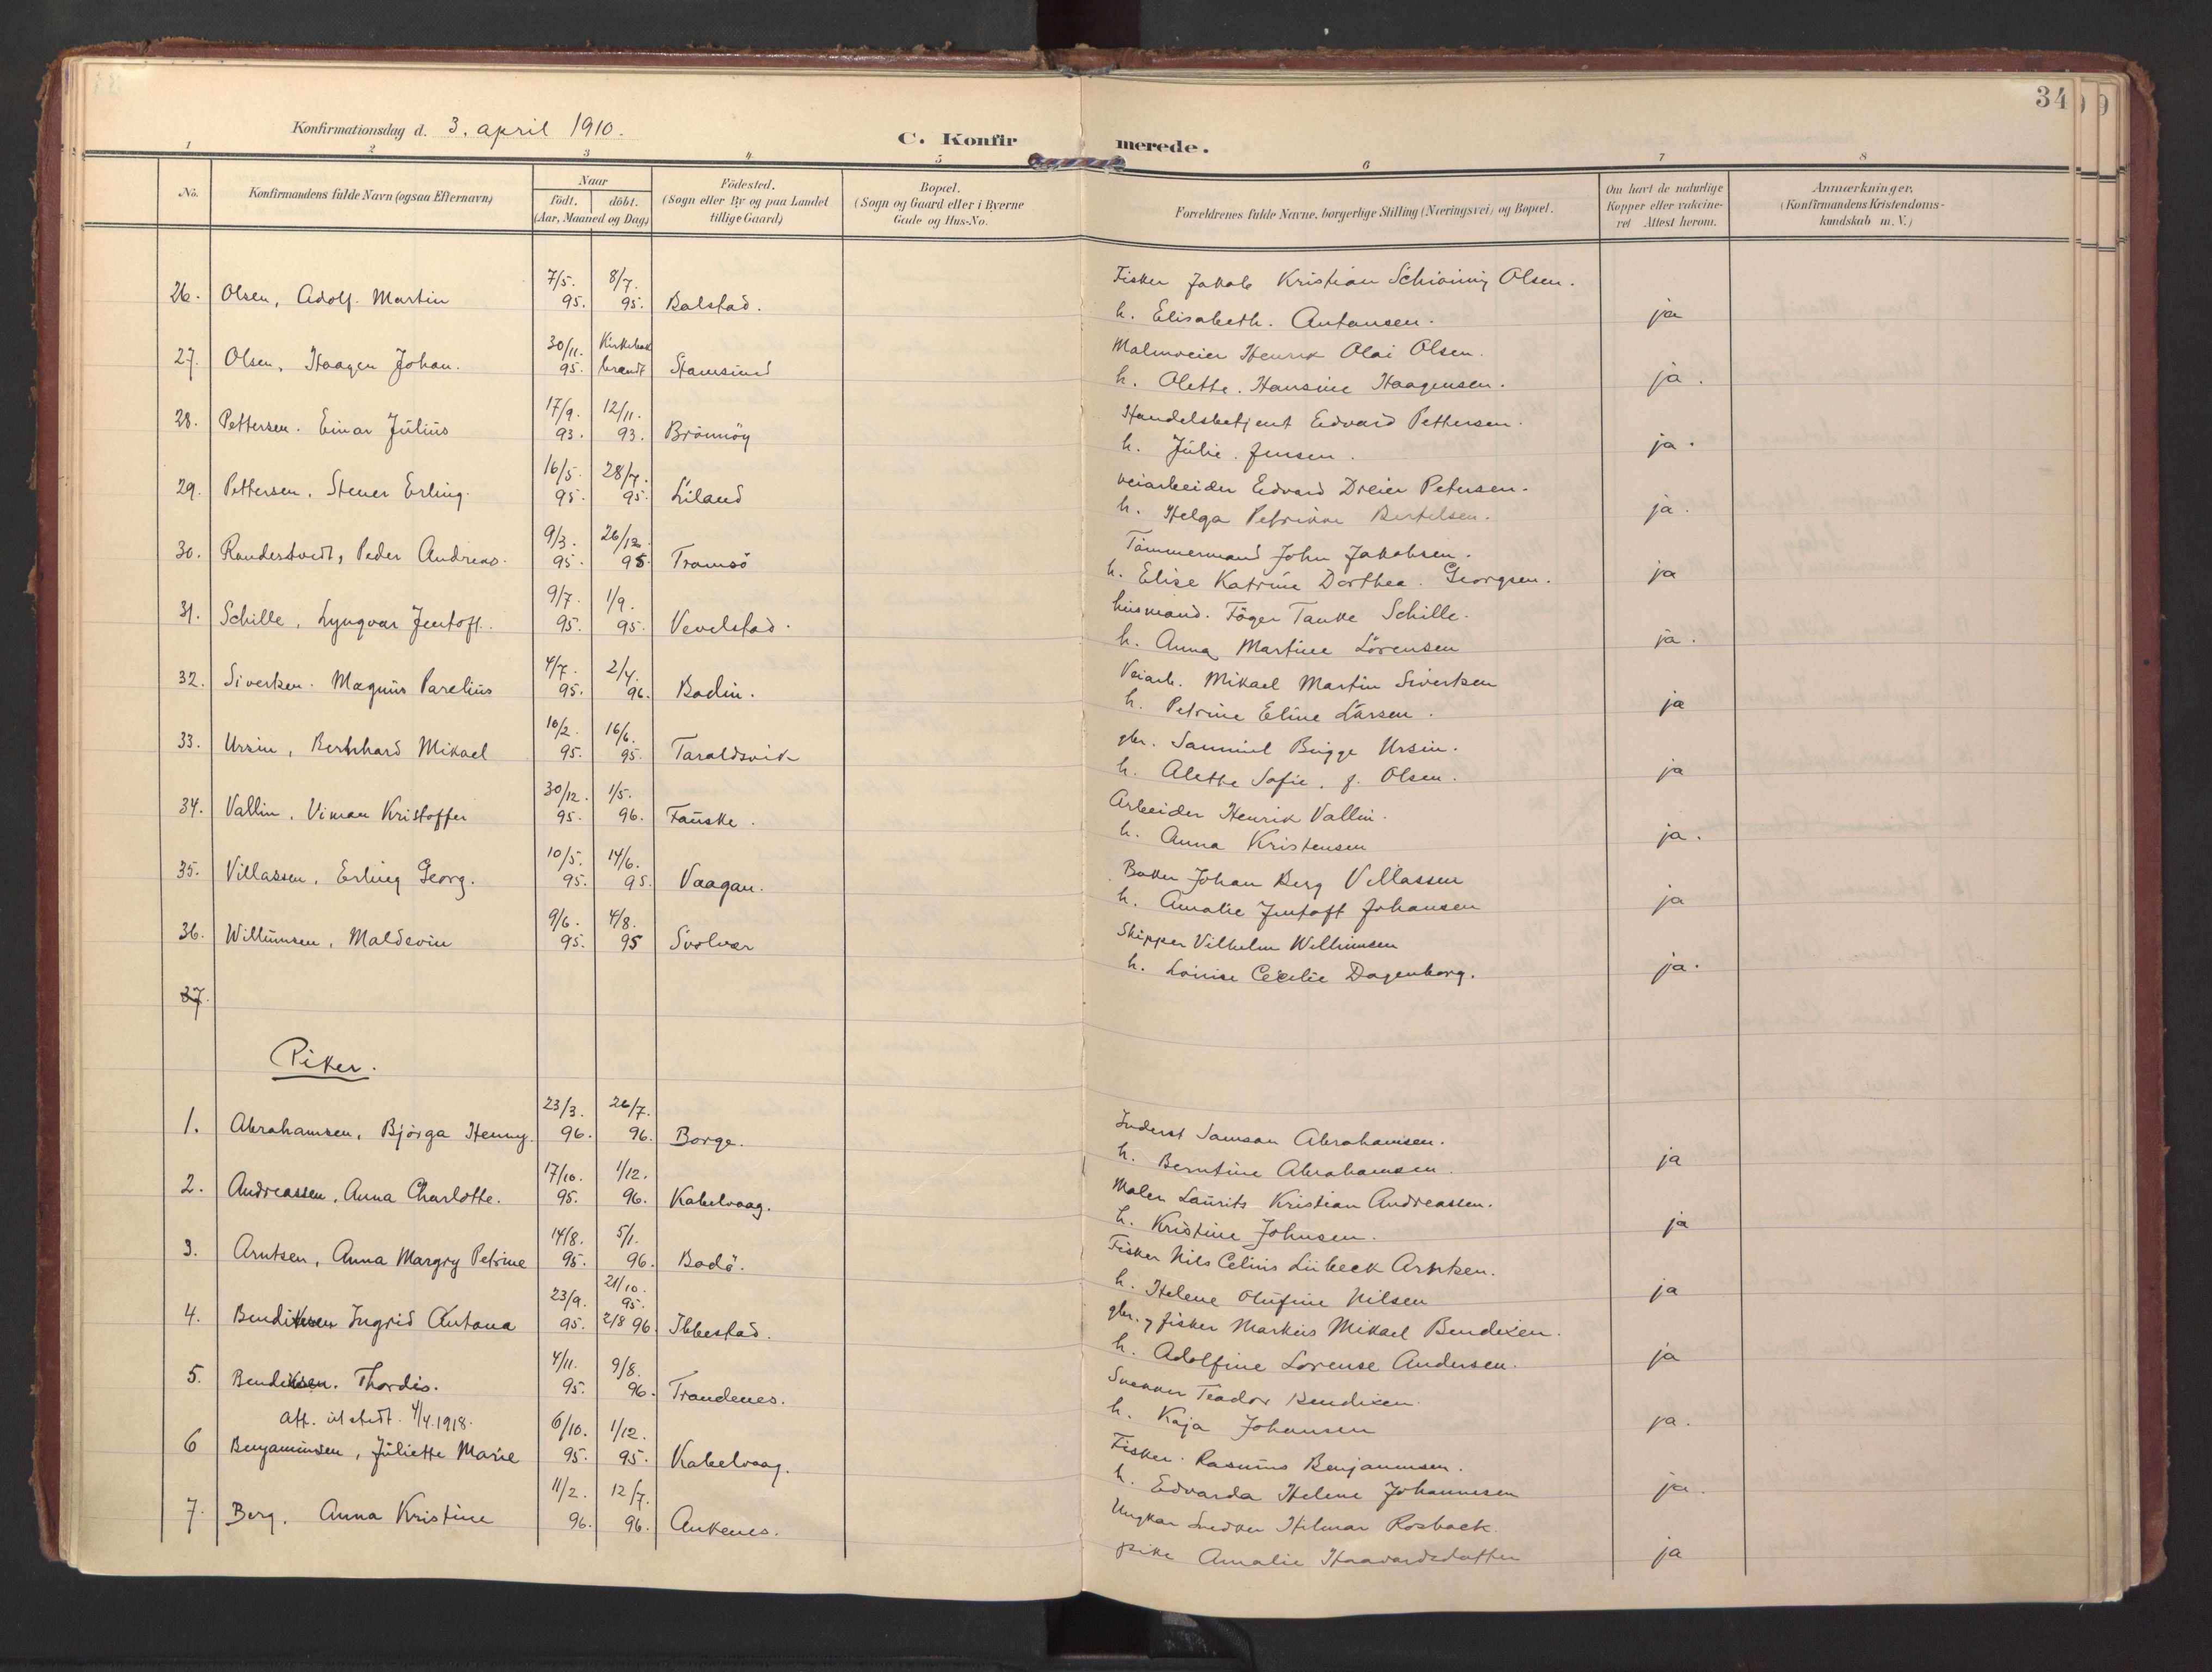 34
Konfirmationsdag d. 3. april 1910.
C. Konfirmerede.
1 2 3 4 5 6 7 8
No.
Konfirmandens fulde Navn (ogsaa Efternavn)
Naar
födt. döbt.
(Aar, Maaned og Dag)
Födested.
(Sogn eller By og paa Landet
tillige Gaard)
Bopæl.
(Sogn og Gaard eller i Byerne
Gade og Hus-No.
Forældrenes fulde Navne, borgerlige Stilling (Næringsvei) og Bopæl.
Om havt de naturlige
Kopper eller vakcine-
ret Attest herom.
Anmærkninger.
(Konfirmandens Kristendoms-
kundskab m. V.)
26. Olsen, Adolf Martin 7/5. 95. 8/7. 95. Balstad. Fisker Jakob Kristian Schiöning Olsen.
h. Elisabeth. Antonsen. ja
27. Olsen, Haagen Johan. 30/11. 95. Kirkebok brændt Stamsund Malmveier Henrik Olai Olsen.
h. Olette. Hansine Haagensen. ja.
28. Pettersen. Einar Julius 17/9. 93. 12/11. 93. Brönnöy Handelsbetjent Edvard Pettersen.
h. Julie. Jensen. ja.
29. Pettersen, Stener Erling. 16/5. 95. 28/7. 95. Liland veiarbeider Edvard Dreier Petersen.
h. Helga Petrikke Bertelsen. ja.
30. Randestvedt, Peder Andreas. 9/3. 95. 26/12. 95. Tromsö Tömmermand John Jakobsen.
h. Elise Katrine Dorthea. Georgsen. ja
31. Schille, Lyngvar Jentoft. 9/7. 95. 1/9. 95. Vevelstad. husmand. Föger Tanke Schille.
h. Anna Martine Sörensen ja.
32. Sivertsen. Magnus Parelius 4/7. 95. 2/4. 96. Bodin. Veiarb. Mikael Martin Sivertsen
h. Petrine Eline Larsen. ja
33. Ursin, Bernhard Mikael 10/2. 95. 16/6. 95. Taraldsvik gbr. Samuel Brügge Ursin.
h. Alette Sofie, f. Olsen. ja
34. Vallin. Viman Kristoffer 30/12. 95. 1/5. 96. Fauske. Arbeider Henrik Vallin.
h. Anna Kristensen ja.
35. Villassen, Erling Georg. 10/5. 95. 14/6. 95. Vaagan. Baker Johan Berg Villassen
h. Amalie Jentoft Johansen ja
36. Willumsen, Maldevin 9/6. 95. 4/8. 95 Svolvær Skipper Vilhelm Willumsen
h. Louise Cecilie Dagenborg. ja.
37.
Piker.
1. Abrahamsen, Björga Henny. 23/3. 96. 26/7. 96. Borge. Inderst Samson Abrahamsen.
h. Berntine Abrahamsen. ja
2. Andreassen, Anna Charlotte. 17/10. 95. 1/12. 96. Kabelvaag. Maler Laurits Kristian Andreassen.
h. Kristine Johnsen. ja
3. Arntsen, Anna Margry Petrine 14/8. 95. 5/1. 96. Bodö. Fisker Nils Celius Lübeck Arntsen.
h. Helene Olufine Nilsen ja
4. Bendiksen Ingrid Antona 23/9. 95. 21/10. 95. 2/8 96. Ibbestad. gbr. og fisker Markus Mikael Bendixen.
h. Adolfine Lorense Andersen. ja
5. Bendiksen. Thordis. 4/11. 95. 9/8. 96. Trondenes. Snekker Teodor Bendixen.
h. Kaja Johansen ja.
Att. utstedt. 4/4.1918.
6 Benjaminsen, Juliette Marie 6/10. 95. 1/12. 95. Kabelvaag. Fisker. Rasmus Benjaminsen.
h. Edvarda Helene Johannesen ja.
7. Berg. Anna Kristine 11/2. 96. 12/7. 96. Ankenes. Ungkar Snedker Hilmar Rosback.
pike Amalie Haavardsdatter ja